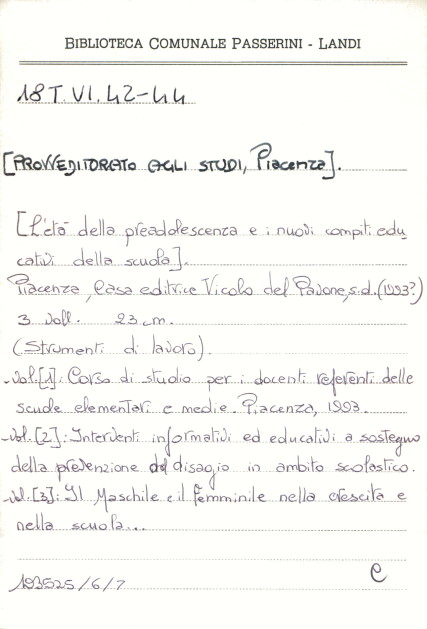 BIBLIOTECA COMUNALE PASSERINI - LANDI
18 T. VI. 42-44
[PROVVEDITORATO AGLI STUDI, Piacenza].
[L'età della preadolescenza e i nuovi compiti edu
cativi della scuola].
Piacenza, Casa editrice Vicolo del Pavone, s.d. (1993?)
3 voll. 23 cm.
(Strumenti di lavoro).
-vol.[1]: Corso di studio per i docenti referenti delle
scuole elementari e medie. Piacenza, 1993.
-vol.[2]: Interventi informativi ed educativi a sostegno
della prevenzione del disagio in ambito scolastico.
-vol.[3]: Il Maschile e il femminile nella crescita e
nella scuola...
193525/6/7
C